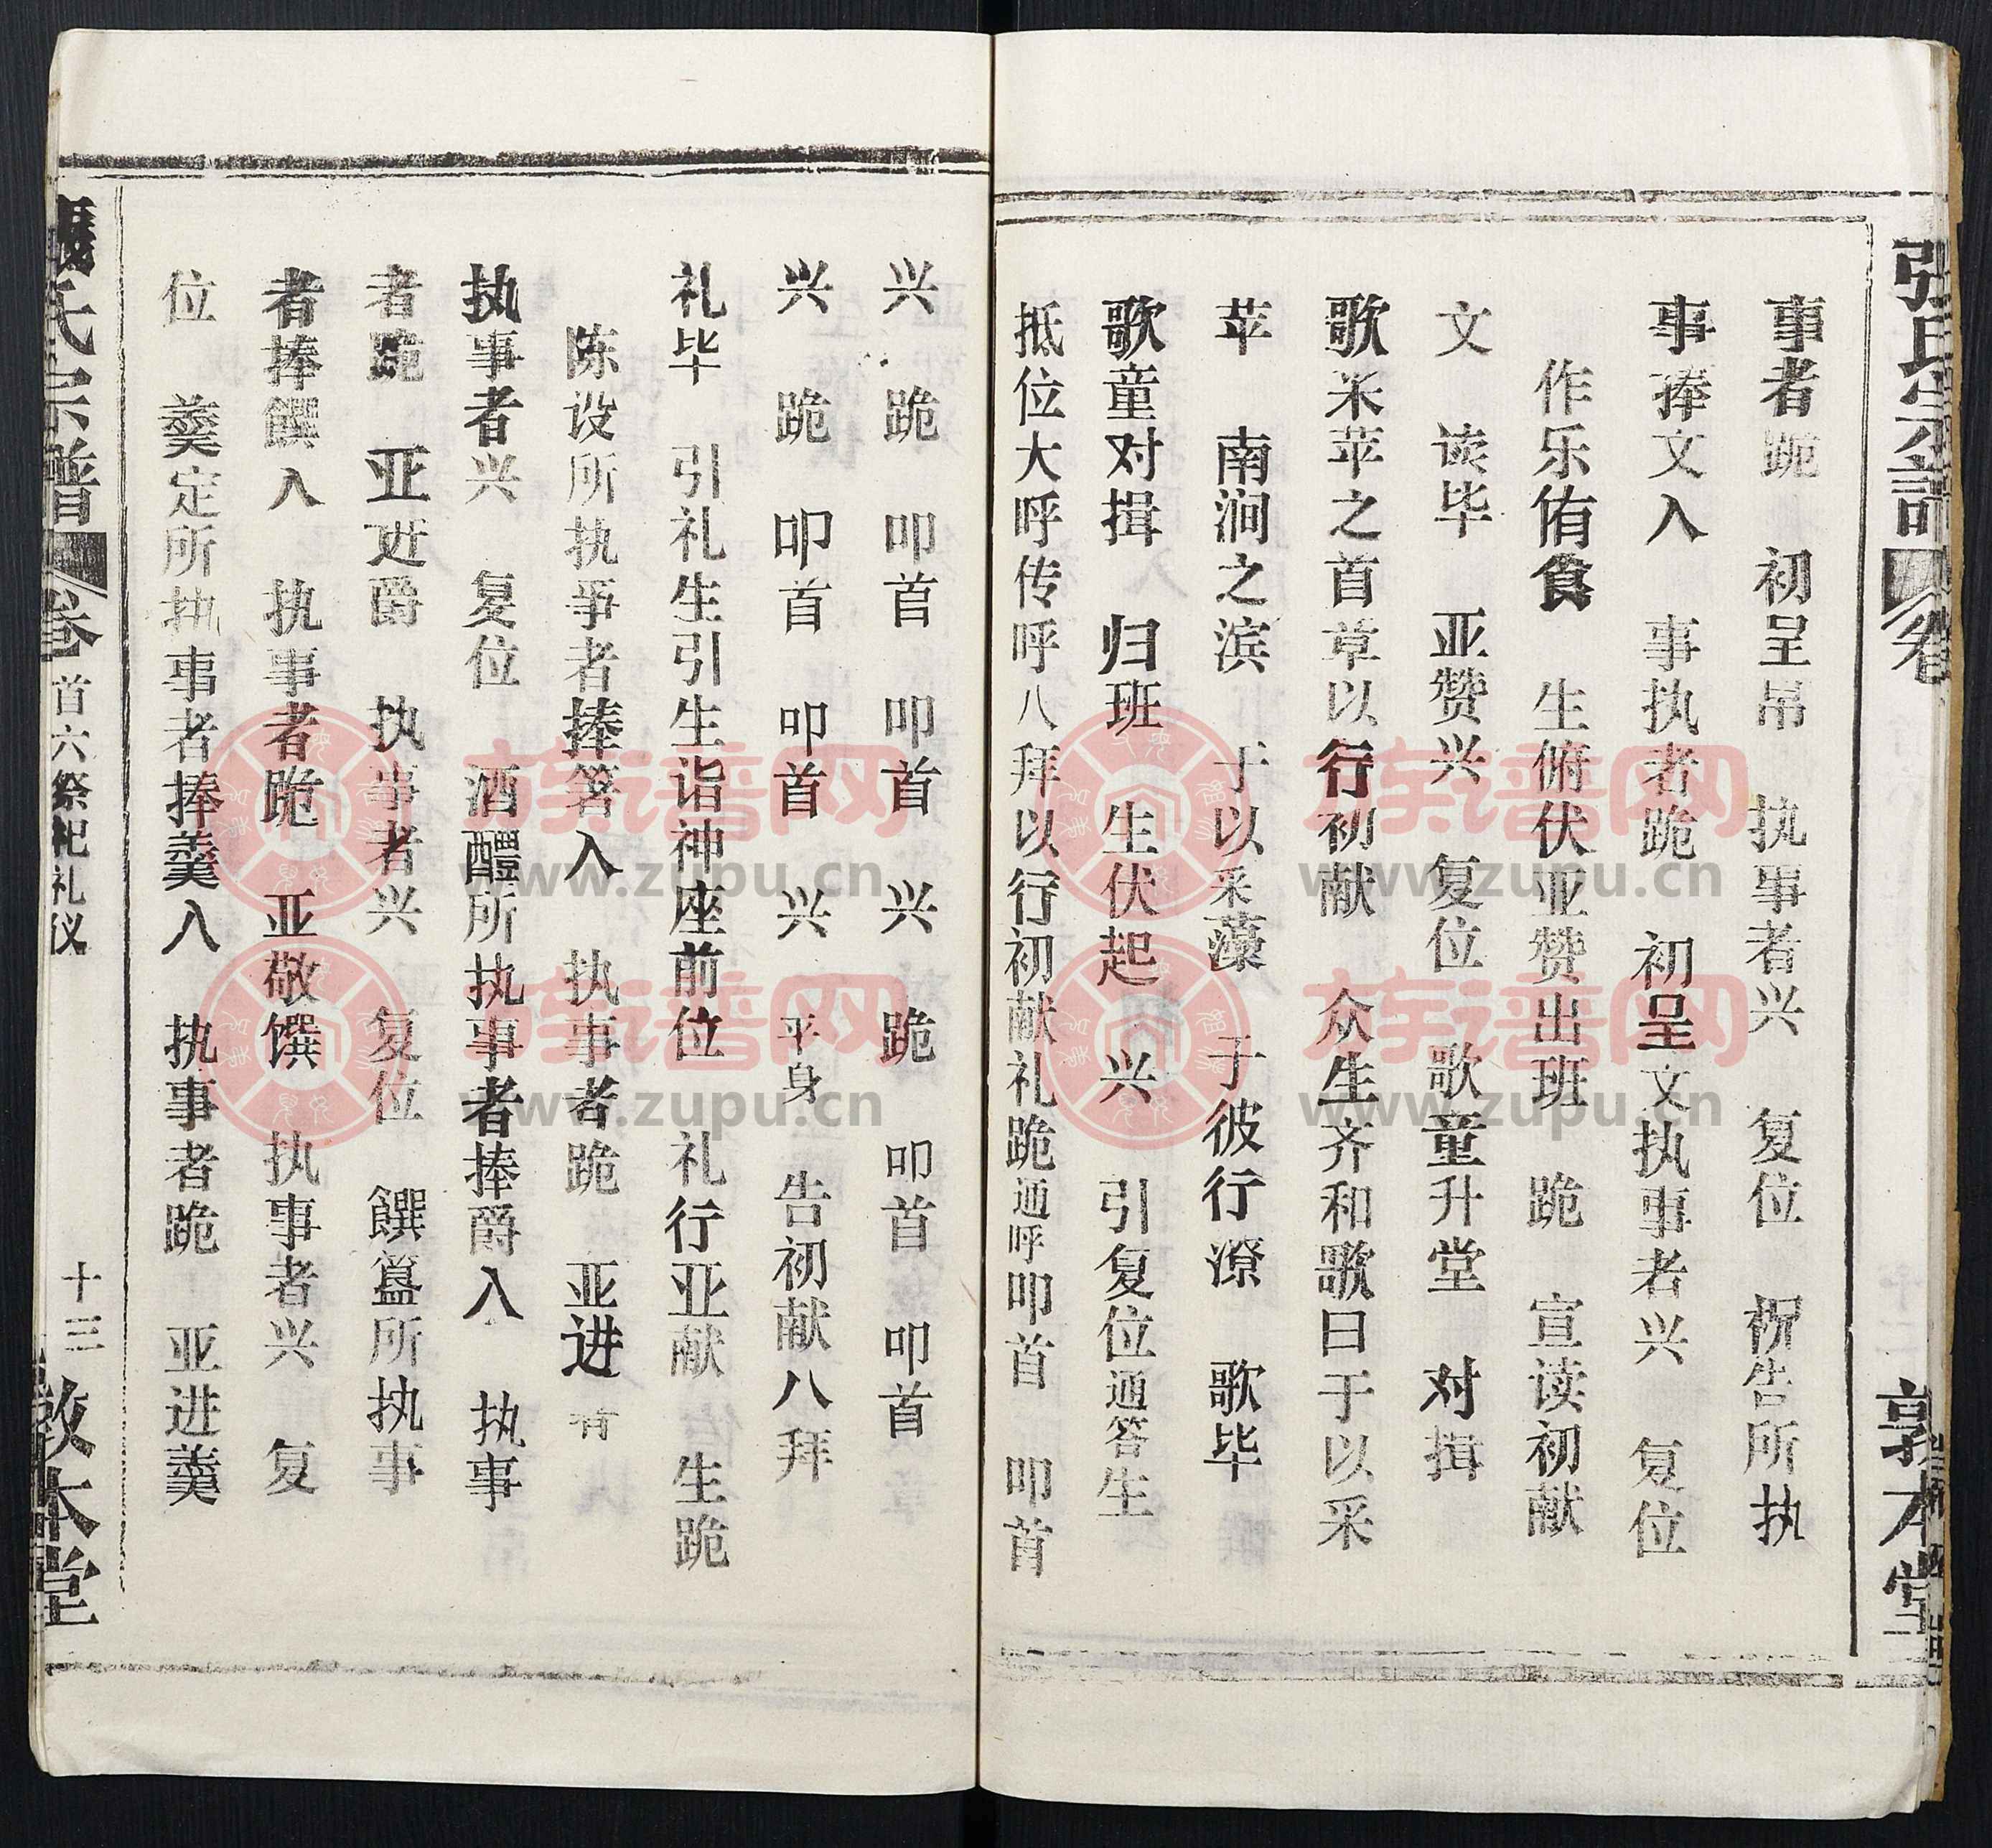 张氏宗谱 卷
敦本堂
事者跪 初呈帛 执事者兴 复位 祝告所执
事捧文入 事执者跪 初呈文执事者兴 复位
作乐侑食 生俯伏亚赞出班 跪 宣读初献
文 读毕 亚赞兴 复位 歌童升堂 对揖
歌采苹之首章以行初献 众生齐和歌曰于以采
苹 南涧之滨 于以采藻 于彼行潦 歌毕
歌童对揖 归班 生伏起 兴 引复位通答生
抵位大呼传呼八拜以行初献礼跪通呼叩首 叩首
兴 跪 叩首 叩首 兴 跪 叩首 叩首
兴 跪 叩首 叩首 兴 平身 告初献八拜
礼毕 引礼生引生诣神座前位 礼行亚献 生跪
陈设所执事者捧箸入 执事者跪 亚进
执事者兴 复位 酒醴所执事者捧爵入 执事
者跪 亚进爵 执事者兴 复位 馔簋所执事
者捧馔入 执事者跪 亚敬馔 执事者兴 复
位 羹定所执事者捧羹入 执事者跪 亚进羹
张氏宗谱 卷首六祭祀礼仪 十三 敦本堂
族谱网
www.zupu.cn
族谱网
www.zupu.cn
族谱网
www.zupu.cn
族谱网
www.zupu.cn